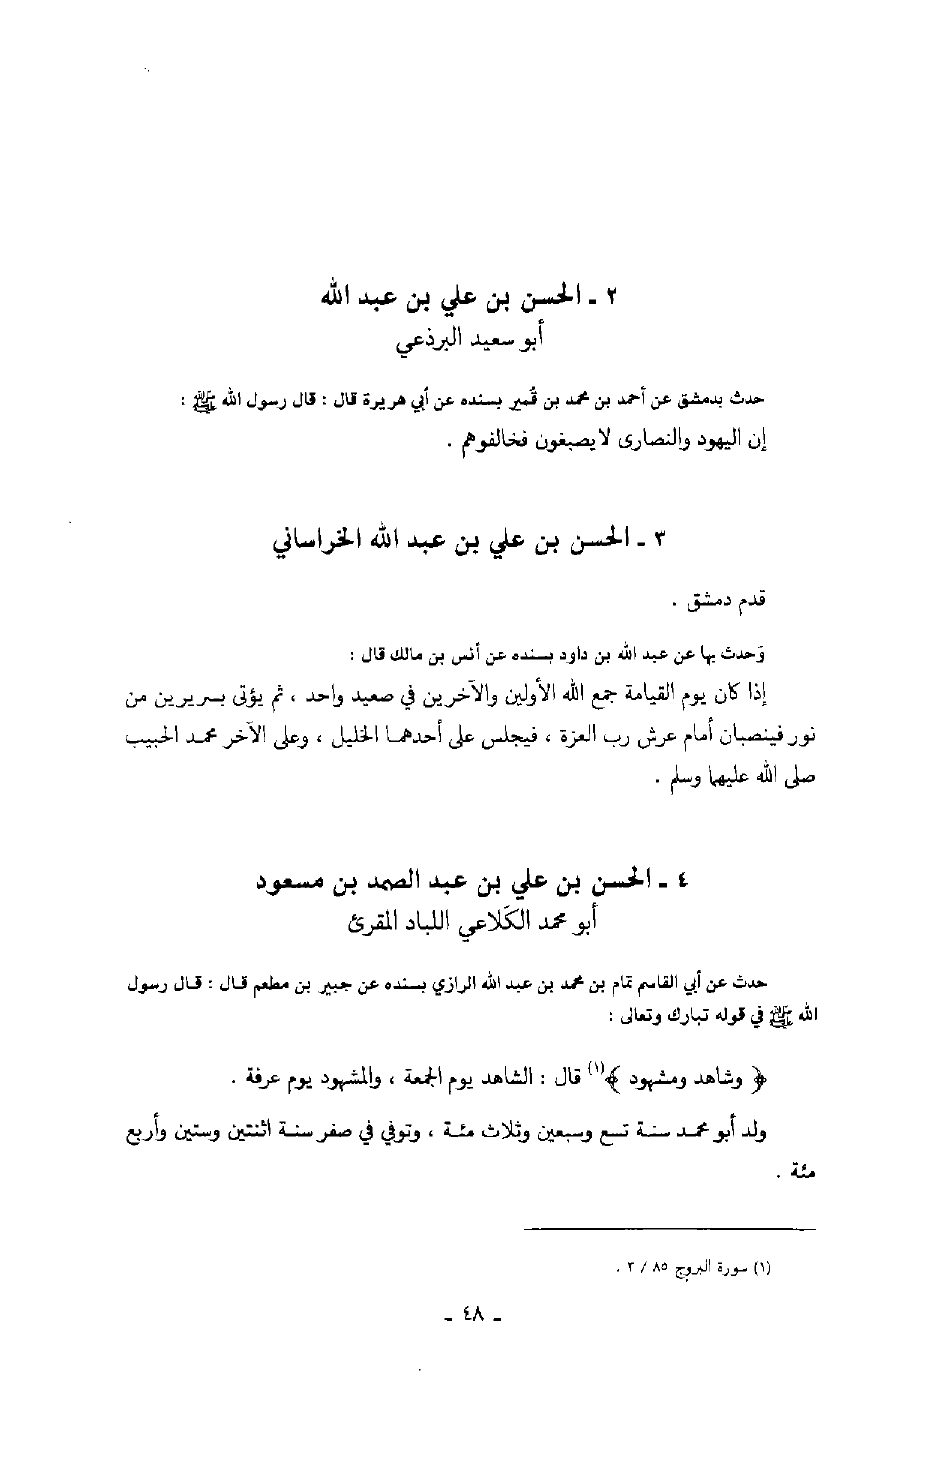 ٢ ـ الحسن بن علي بن عبد الله
أبو سعيد البرذعي
حدث بدمشق عن أحمد بن محمد بن قُمير بسنده عن أبي هريرة قال : قال رسول الله ﷺ :
إن اليهود والنصارى لا يصبغون فخالفوهم .
٣ ـ الحسن بن علي بن عبد الله الخراساني
قدم دمشق .
وَحدث بها عن عبد الله بن داود بسنده عن أنس بن مالك قال :
إذا كان يوم القيامة جمع الله الأولين والآخرين في صعيد واحد ، ثم يؤتى بسريرين من
نور فينصبان أمام عرش رب العزة ، فيجلس على أحدهما الخليل ، وعلى الآخر محمد الحبيب
صلى الله عليهما وسلم .
٤ ـ الحسن بن علي بن عبد الصمد بن مسعود
أبو محمد الكَلاعي اللباد المقرئ
حدث عن أبي القاسم تمام بن محمد بن عبد الله الرازي بسنده عن جبير بن مطعم قال : قال رسول
الله ﷺ في قوله تبارك وتعالى :
﴿ وشاهد ومشهود ﴾(١) قال : الشاهد يوم الجمعة ، والمشهود يوم عرفة .
ولد أبو محمد سنة تسع وسبعين وثلاث مئة ، وتوفي في صفر سنة اثنتين وستين وأربع
مئة .
(١) سورة البروج ٨٥ / ٣ .
ـ ٤٨ ـ